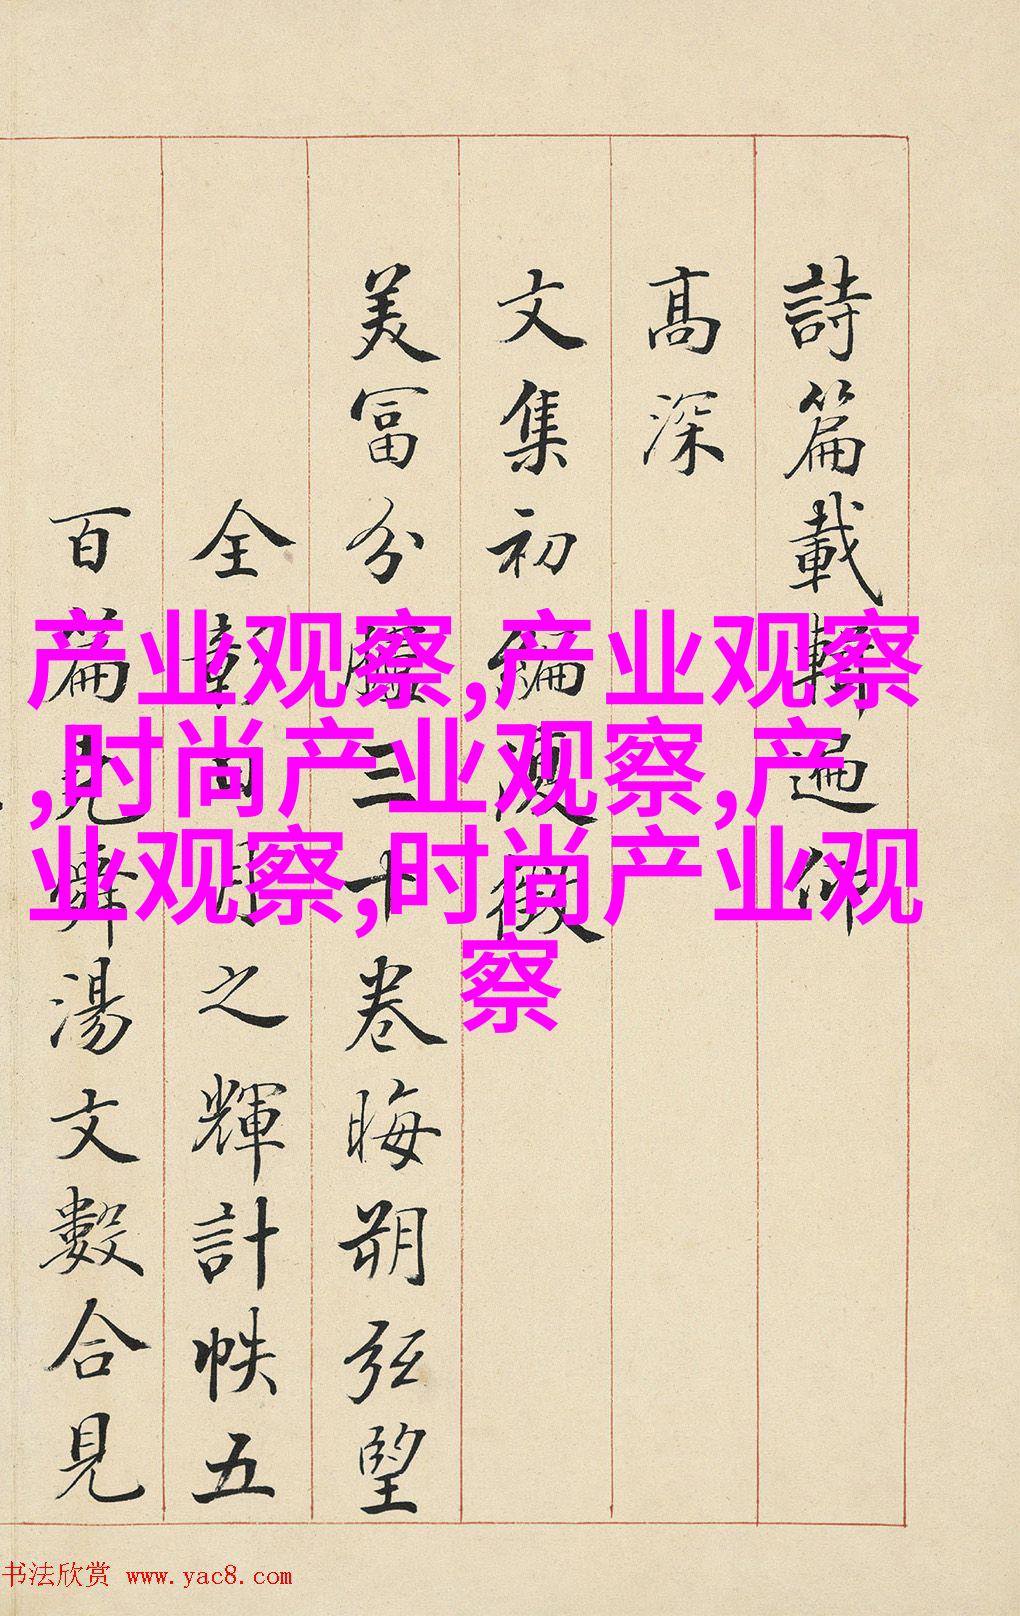 詩篇載遍仰
髙深
文集初編復徵
美冨分臚三十卷晦朔弦望
全彰日月之輝計帙五
百篇堯舜湯文數合見
产业观察,产业观察
,时尚产业观察,产
业观察,时尚产业观
察
书法欣赏 www.yac8.com